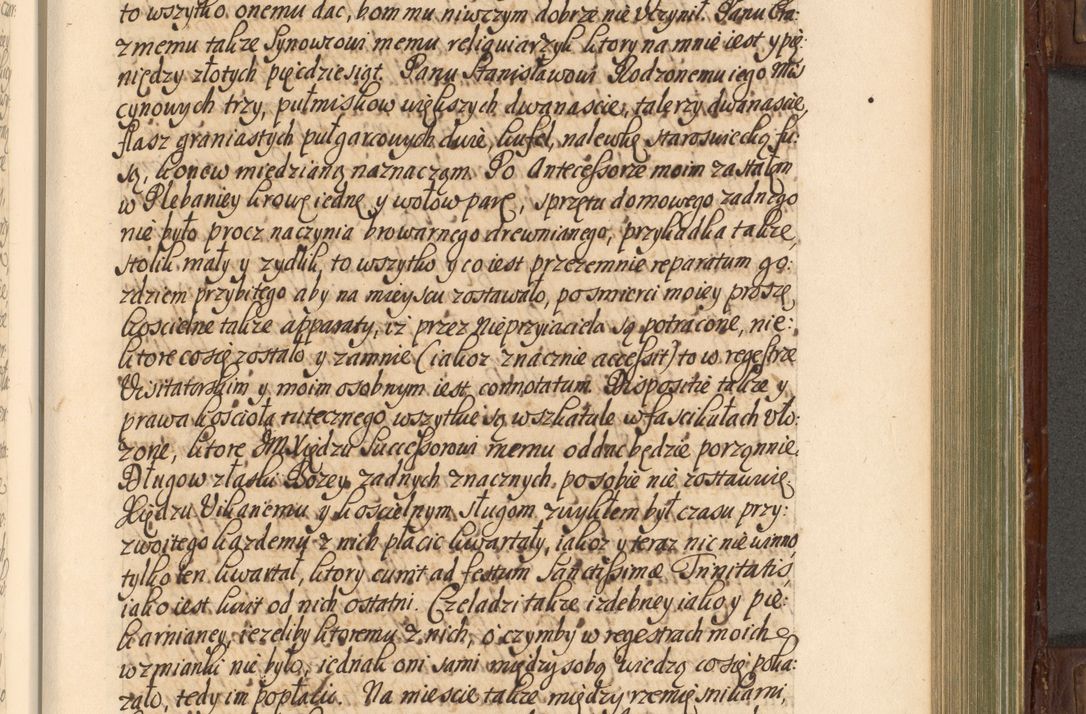 to wszytko onemu dac, bom mu niwczym dobrze nie Vczynił. Panu Ka:
zmemu także Synowcowi memu reliquiarzyk ktory na mnie iest y pię
niędzy złotych pięcdziesiąt. Panu Stanisławowi Rodzonemu iego Mis
cynowych trzy, pułmiskow większych dwanascie, talerzy dwanascie,
flasz graniastych pułgarcowych dwie, kufel, nalewkę staroswiecką fu:
są, konew miedzianą naznaczam. Po Antecessorze moim zastałem
w Plebaniey krowę iednę y wołow parę, sprzętu domowego zadnego
nie było procz naczynia browarnego drewnianego, przykadka także,
stolik mały y zydlik, to wszytko y co iest przezemnie reparatum go:
zdziem przybitego aby na mieyscu zostawało, po smierci moiey proszę,
koscielne także apparaty, iz przez Nieprzyiaciela są potracone, nie:
ktore co się zostało y zamnie (iakoz znacznie accessit) to w regestrze
Visitatorskim y moim osobnym iest connotatum. Dispositie także y
prawa koscioła tutecznego wszytkie są w szkatule w fascikułach vło:
zone, ktore JM Xiędzu Successorowi memu oddac będzie porządnie.
Długow złaski Bozey zadnych znacznych po sobie nie zostawuię.
Xiędzu Vikanemu y koscielnym sługom zwykłem był czasu przy:
zwoitego kazdemu z nich płacic kwartały, iakoz y teraz nic nie winno,
tylko ten kwartał, ktory currit ad festum Sanctissimæ Trinitatis,
iako iest kwit od nich ostatni. Czeladzi także izdebney iako y pie:
karnianey, iezeliby ktoremu z nich, o czymby w regestrach moich
wzmianki nie było, iednak oni sami między sobą wiedzą co się poka:
zało, tedy im popłacic. Na miescie także między rzemięsnikami,